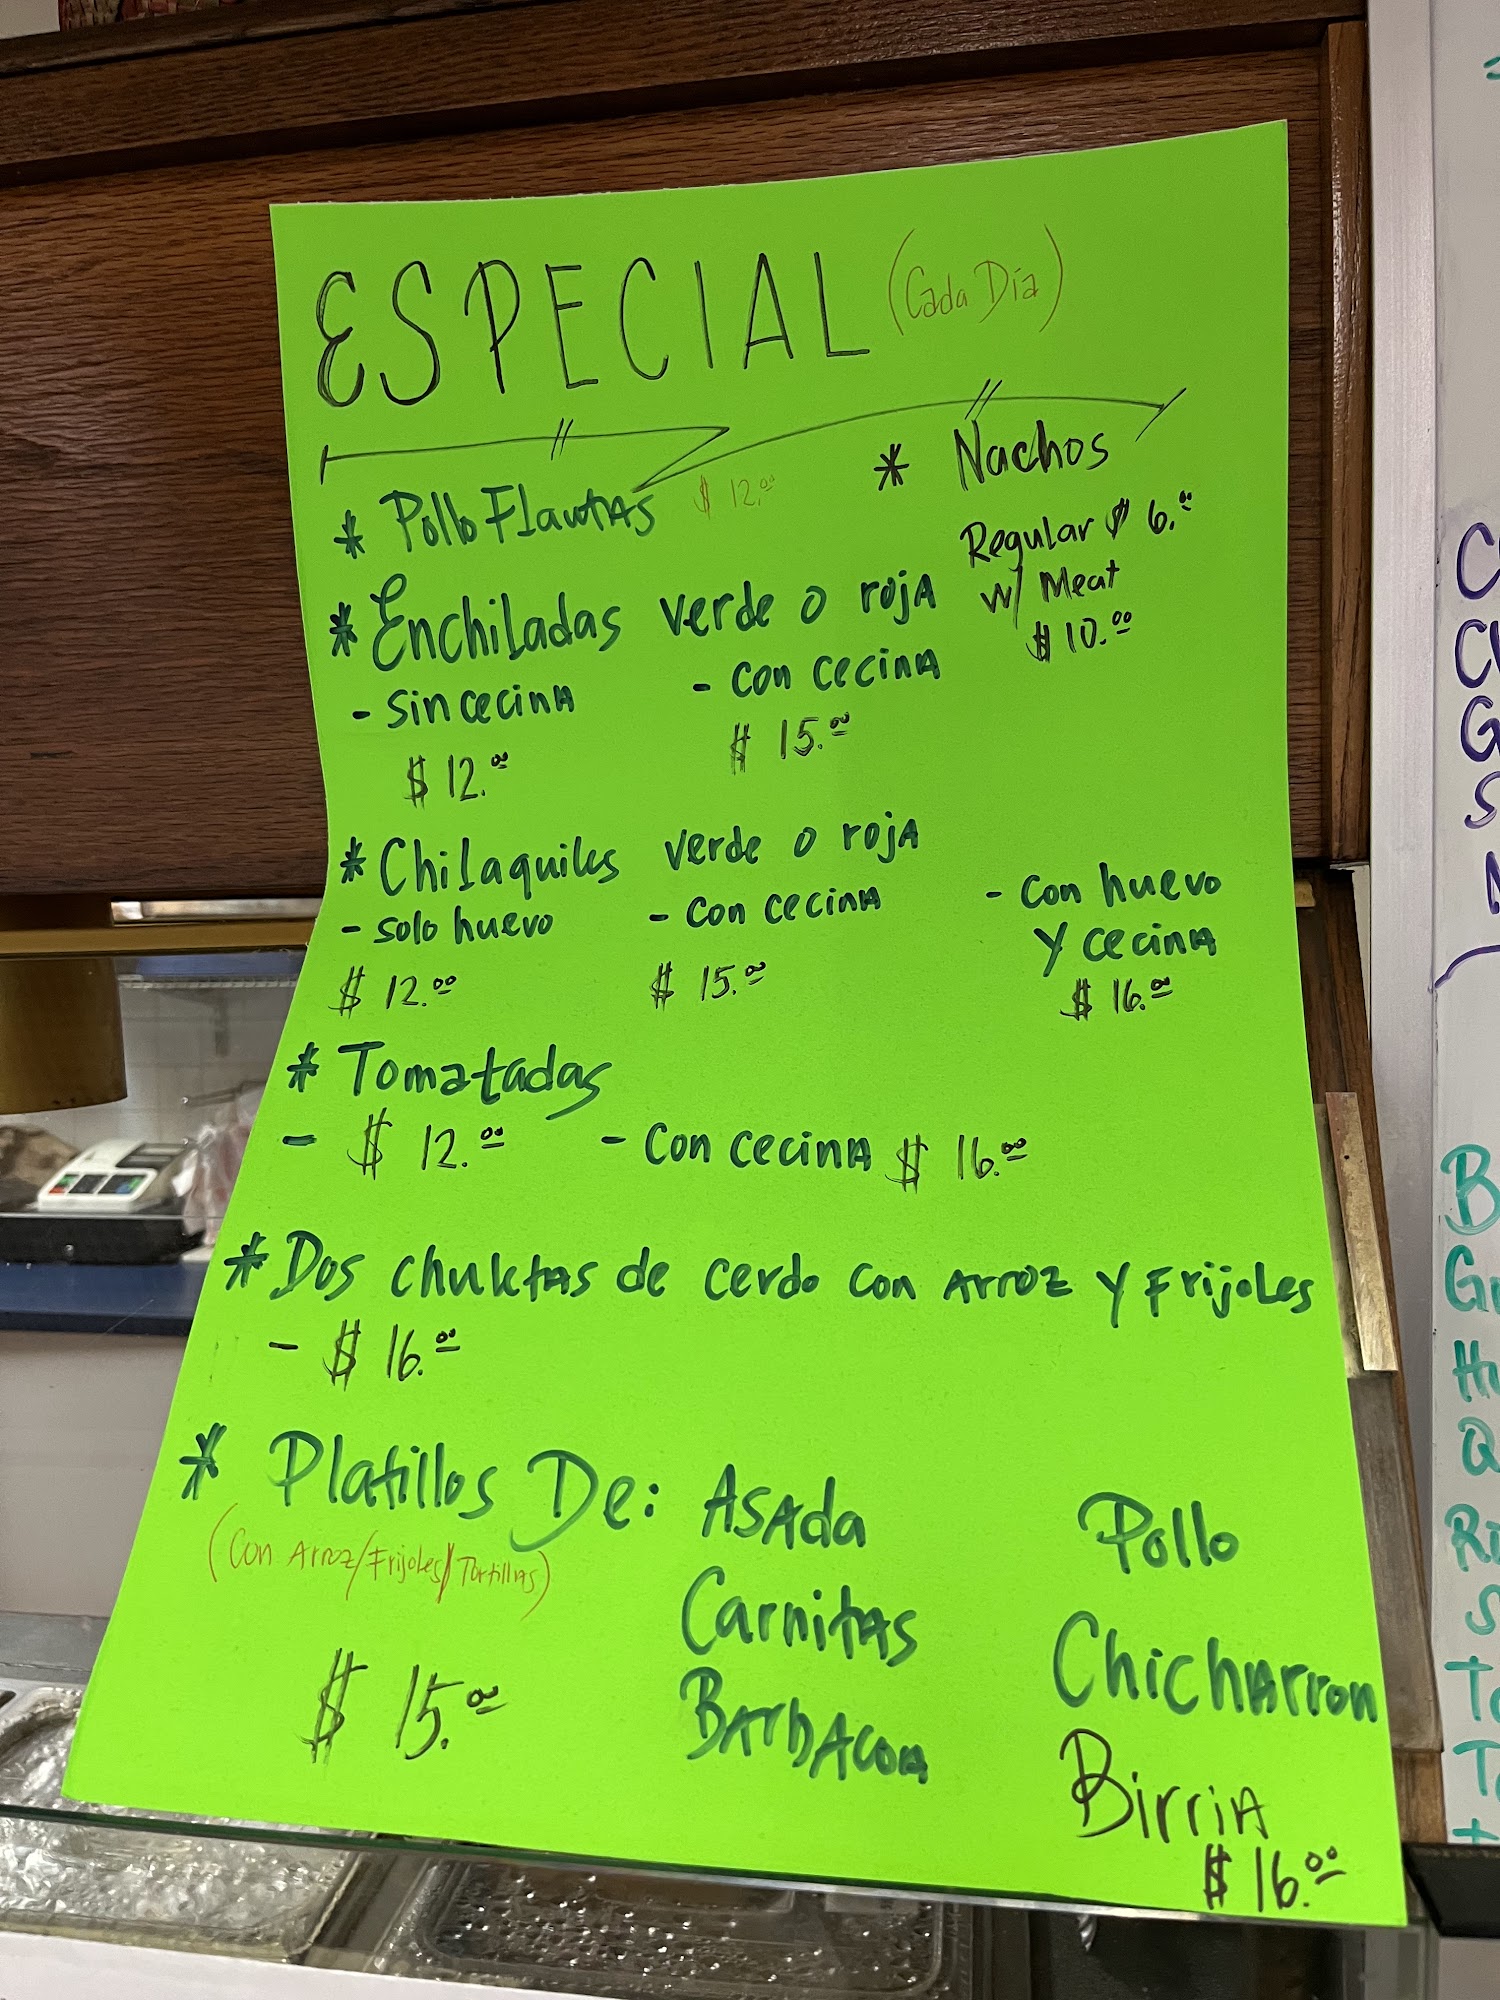 ESPECIAL (Cada Día)
* Pollo Flautas $ 12.00
* Nachos
Regular $ 6.00
w/ Meat
$ 10.00
* Enchiladas verde o roja
- Sin cecina - Con cecina
$ 12.00 $ 15.00
* Chilaquiles verde o roja
- Solo huevo - Con cecina - Con huevo
y cecina
$ 12.00 $ 15.00 $ 16.00
* Tomatadas
- $ 12.00 - Con cecina $ 16.00
* Dos chuletas de cerdo con Arroz y Frijoles
- $ 16.00
* Platillos De: Asada Pollo
(Con Arroz/Frijoles/Tortillas)
Carnitas Chicharron
$ 15.00 Barbacoa Birria
$ 16.00